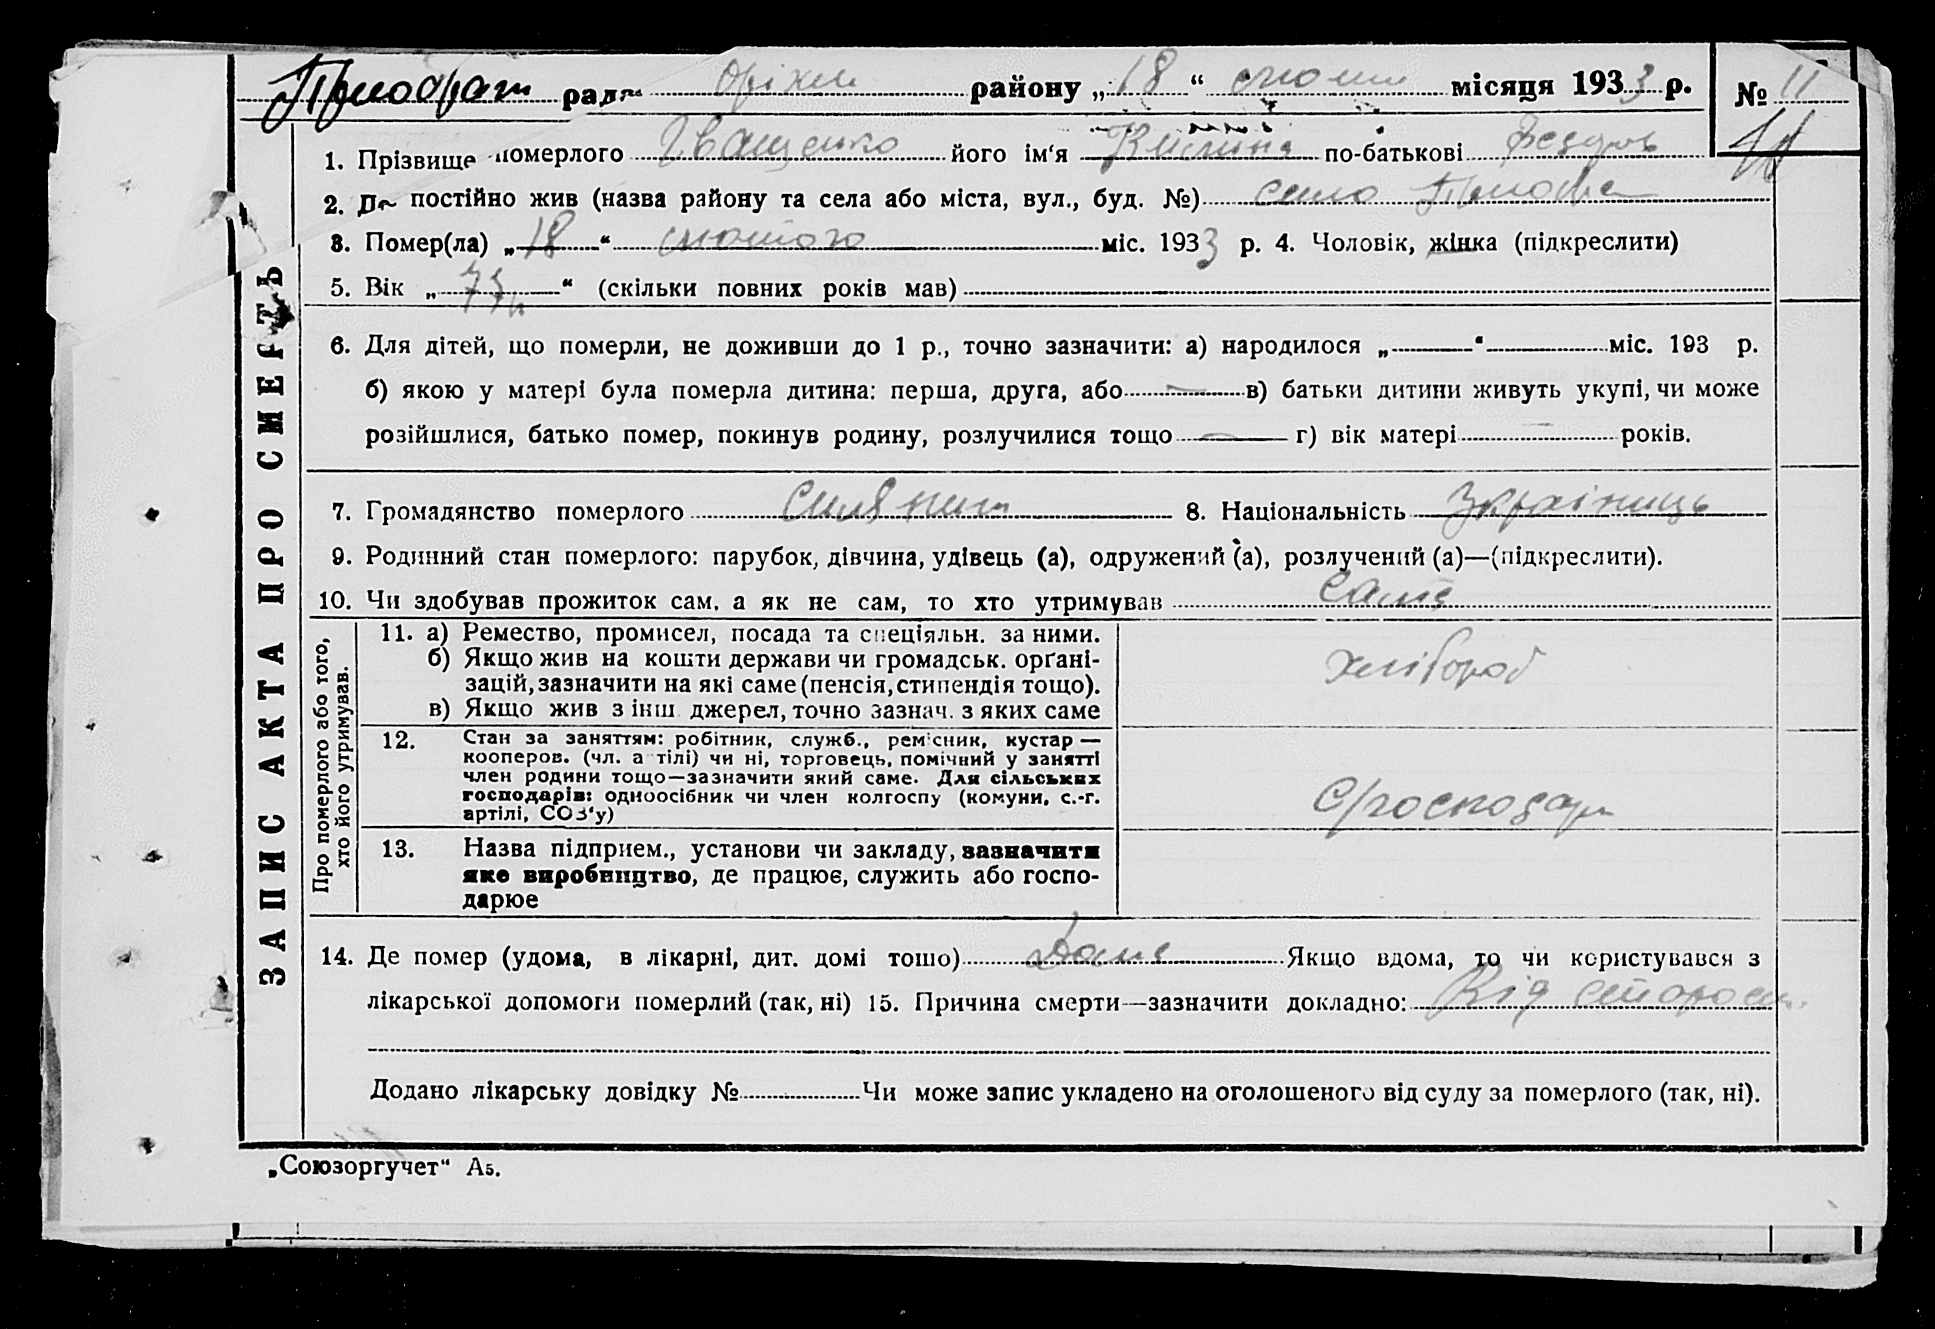 рада Оріхів району „18“ місяця 1933 р. № 11
1. Прізвище померлого Іващенко його ім'я по-батькові Федорів
2. Де постійно жив (назва району та села або міста, вул., буд. №) село
3. Помер(ла) „18“ лютого міс. 1933 р. 4. Чоловік, жінка (підкреслити)
5. Вік „ “ (скільки повних років мав)
6. Для дітей, що померли, не доживши до 1 р., точно зазначити: а) народилося „ “ міс. 193 р.
б) якою у матері була померла дитина: перша, друга, або — в) батьки дитини живуть укупі, чи може
розійшлися, батько помер, покинув родину, розлучилися тощо — г) вік матері — років.
7. Громадянство померлого 8. Національність Українець
9. Родинний стан померлого: парубок, дівчина, удівець (а), одружений (а), розлучений (а)—(підкреслити).
10. Чи здобував прожиток сам, а як не сам, то хто утримував сама
Про померлого або того,
хто його утримував.
11. а) Ремество, промисел, посада та спеціяльн. за ними.
б) Якщо жив на кошти держави чи громадськ. орґані-
зацій, зазначити на які саме (пенсія, стипендія тощо).
в) Якщо жив з інш. джерел, точно зазнач. з яких саме
хлібороб
12. Стан за заняттям: робітник, служб., ремісник, кустар —
кооперов. (чл. артілі) чи ні, торговець, помічний у занятті
член родини тощо—зазначити який саме. Для сільських
господарів: одноосібник чи член колгоспу (комуни, с.-г.
артілі, СОЗ'у)
13. Назва підприєм., установи чи закладу, зазначити
яке виробництво, де працює, служить або госпо-
дарює
14. Де помер (удома, в лікарні, дит. домі тощо) Дома Якщо вдома, то чи користувався з
лікарської допомоги померлий (так, ні) 15. Причина смерти—зазначити докладно: Від старости
Додано лікарську довідку № Чи може запис укладено на оголошеного від суду за померлого (так, ні).
ЗАПИС АКТА ПРО СМЕРТЬ
„Союзоргучет“ А5.